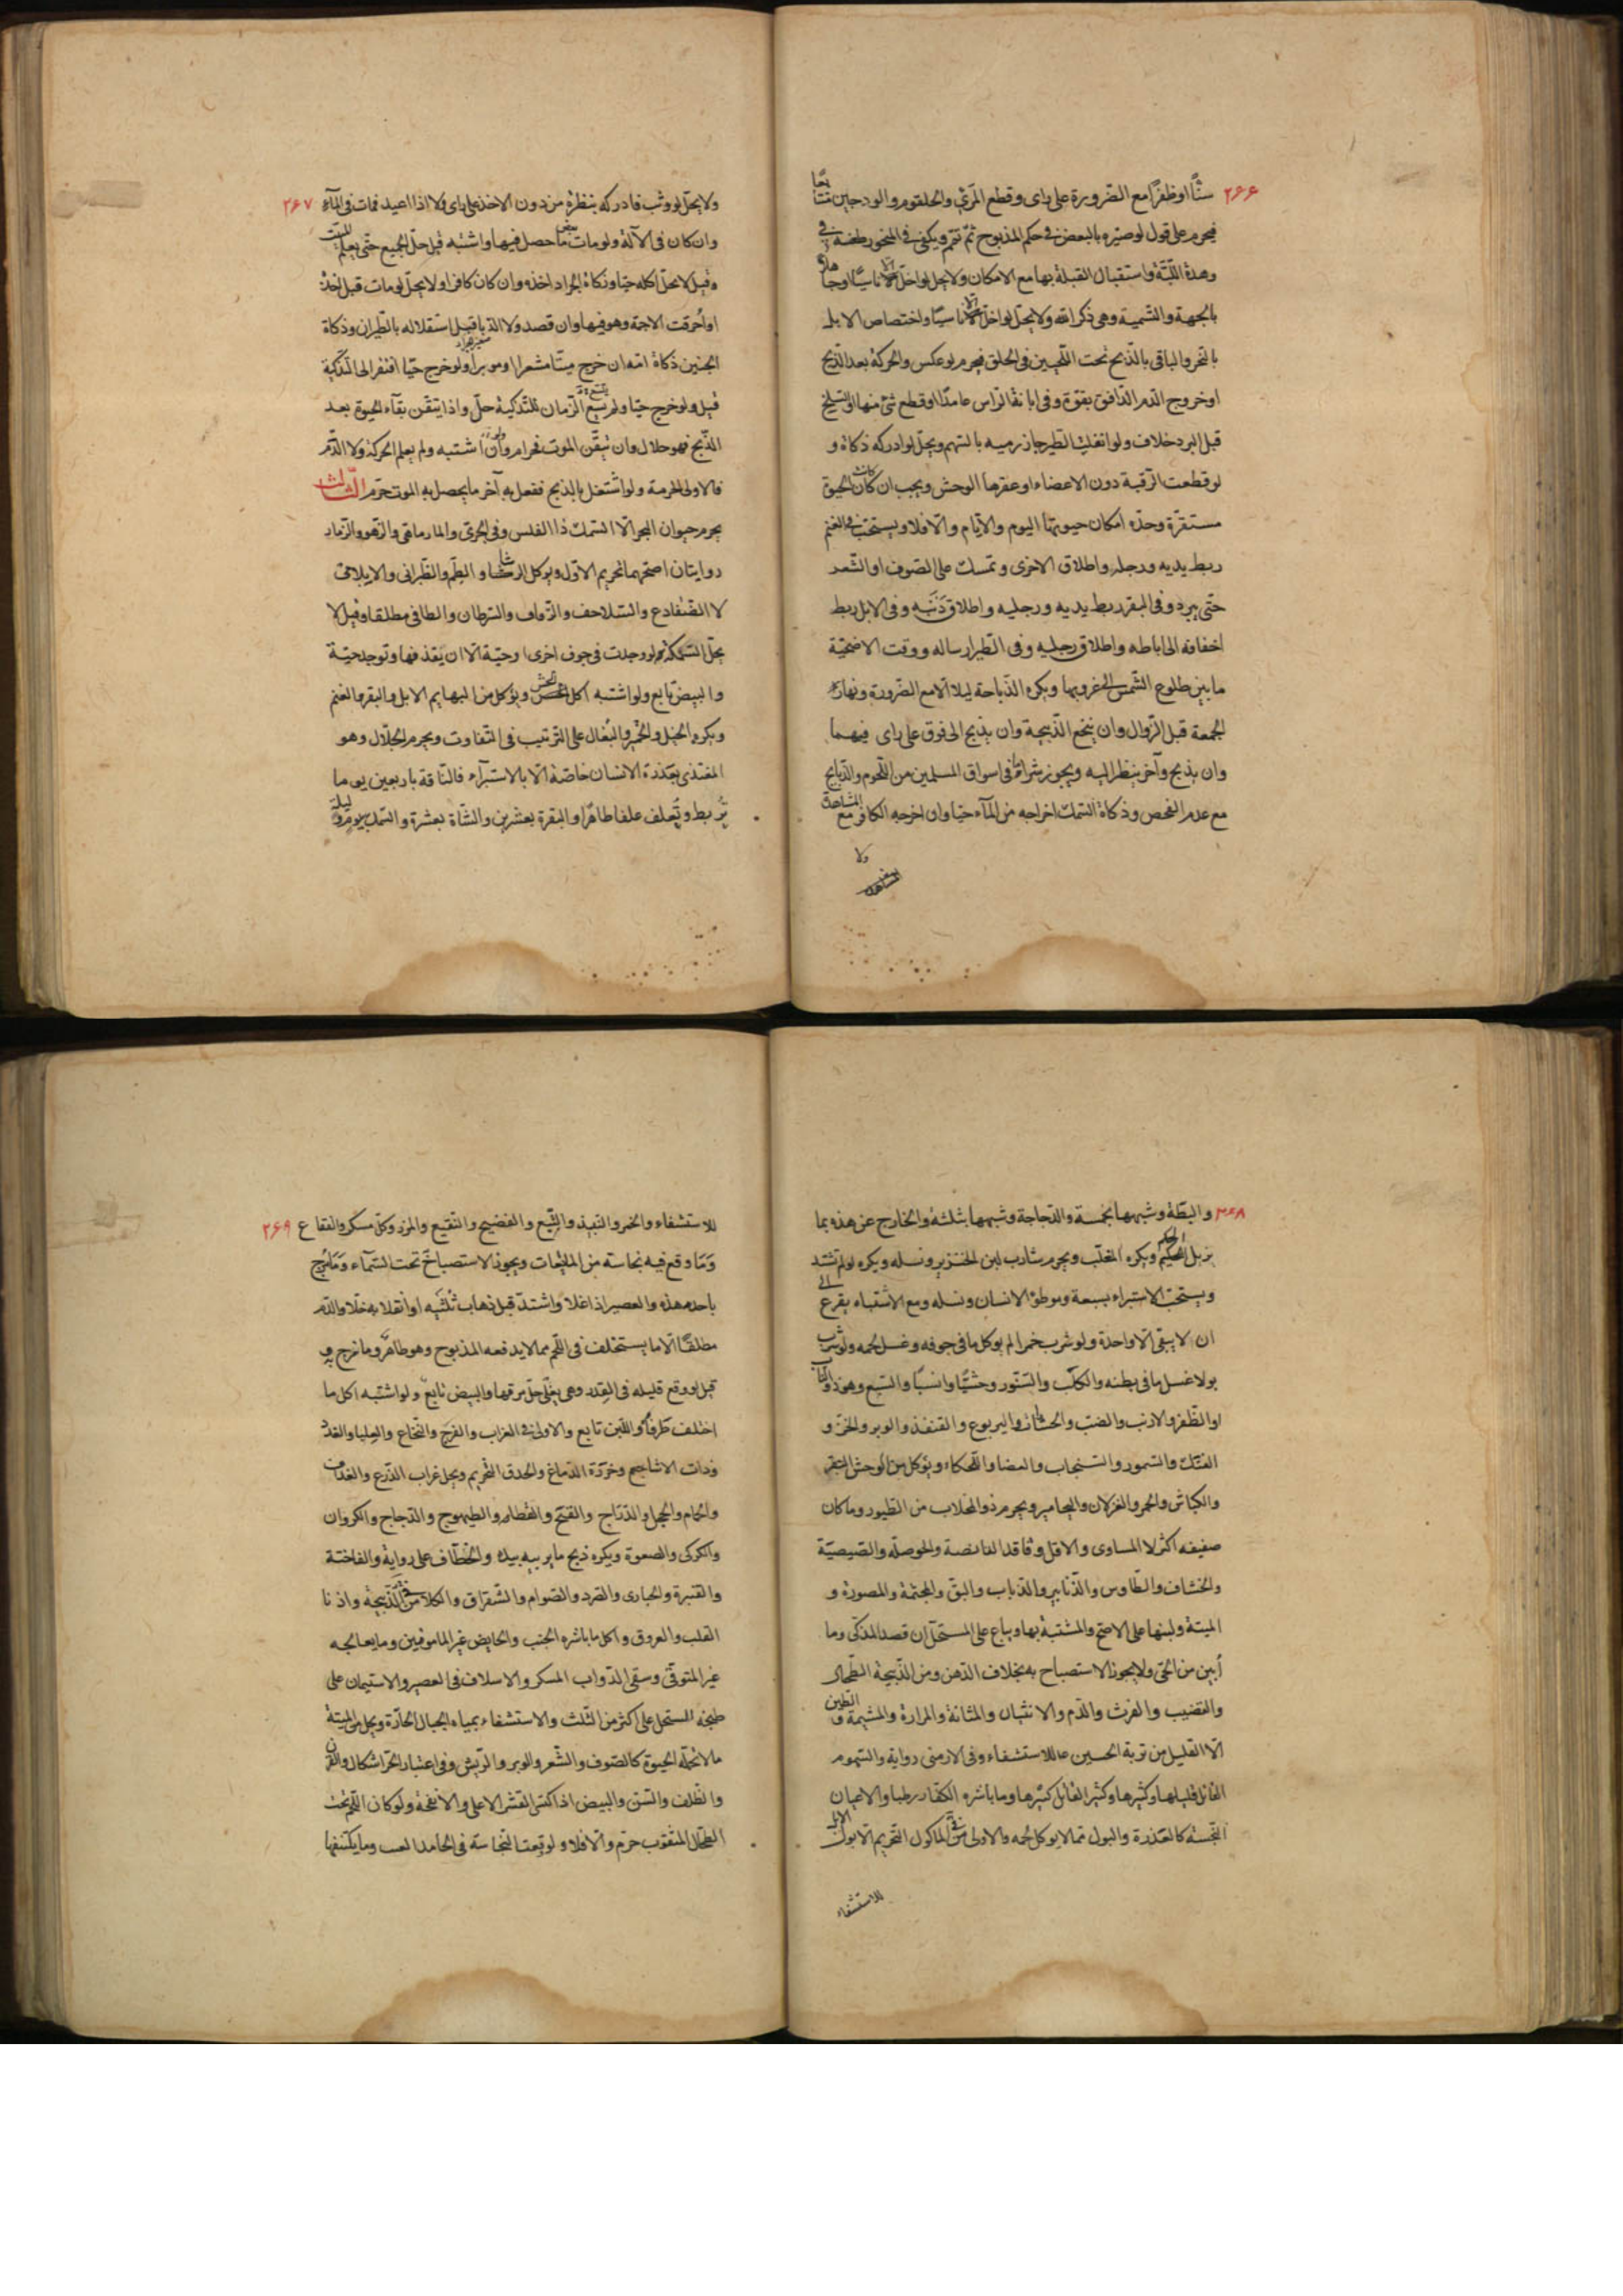 ٢۶۶
سنًّا او ظفرًا مع الضرورة على راى وقطع المرئ والحلقوم والودجين متتابعًا
فيحرم على قول لو صيّره بالبعض فى حكم المذبوح ثمّ تمّم ويكفى فى المنحور طعنه فى
وهدة اللّبّة واستقبال القبلة بها مع الامكان ولا يحل لو اخلّ الّا ناسيًا او جاهلًا
بالجهة والتسمية وهى ذكر الله ولا يحلّ لو اخلّ الّا ناسيًا واختصاص الابل
بالنحر والباقى بالذّبح تحت اللّحيين فى الحلق فيحرم لو عكس والحركة بعد الذّبح
او خروج الدّم الدّافق بقوّة وفى ابانة الرّاس عامدًا او قطع شئ منها او السّلخ
قبل البرد خلاف ولو انفلت الطّير جاز رميه بالسّهم ويحلّ لو ادركه ذكاة و
لو قطعت الرّقبة دون الاعضاء او عقرها الوحش ويجب ان كان الحيوة
مستقرّة وحدّه امكان حيوتها اليوم والايّام والّا فلا ويستحبّ فى الغنم
ربط يديه ورجله واطلاق الاخرى وتمسك على الصّوف او الشّعر
حتّى يبرد وفى البقر ربط يديه ورجليه واطلاق ذنَبه وفى الابل ربط
اخفافه الى اباطه واطلاق رجليه وفى الطّير ارساله ووقت الاضحيّة
ما بين طلوع الشّمس الى غروبها ويكره الذّباحة ليلا الّا مع الضّرورة ونهار
الجمعة قبل الزّوال وان ينخع الذّبيحة وان يذبح الى فوق على راى فيهما
وان يذبح وآخر ينظر اليه ويجوز شراؤه فى اسواق المسلمين من اللّحوم والذّبايح
مع عدم الفحص وذكاة السّمك اخراجه من المآء حيّا وان اخرجه الكافر مع المشاهدة
ولا
٢۶٧
ولا يحلّ لو وثب فادركه بنظرة من دون الاخذ على راى ولا اذا اعيد فمات فى المآء
وان كان فى الآلة ولو مات بعض ما حصل فيها واشتبه قيل حلّ الجميع حتّى يعلم الميّت
وقيل لا يحلّ اكله حيّا وذكاة الجراد اخذه وان كان كافرا ولا يحلّ لو مات قبل اخذه
او احرقت الاجمة وهو فيها وان قصد ولا الدّبا قبل استقلاله بالطّيران وذكاة
الجنين ذكاة امّه ان خرج ميّتا مشعرا او موبرا ولو خرج حيّا افتقر الى التّذكية
قيل ولو خرج حيّا ولم يتّسع الزّمان للتّذكية حلّ واذا تيقّن بقآء الحيوة بعد
الذّبح فهو حلال وان تيقّن الموت فحرام وان اشتبه ولم يعلم الحركة ولا الدّم
فالاولى الحرمة ولو اشتغل بالذّبح ففعل به آخر ما يحصل به الموت حرّم الثّالث
يحرم حيوان البحر الّا السّمك ذا الفلس وفى الجرّى والمارماهى والزّهو والزّمار
روايتان اصحّهما تحريم الاوّل ويوكل الرّبيثا والطّمر والطّبرانى والايلامى
لا الضّفادع والسّلاحف والزّفاف والسّرطان والطافى مطلقا وقيل لا
يحلّ السّمكة لو وجدت فى جوف اخرى او حيّة الّا ان يقذفها وتوجد حيّة
والبيض تابع ولو اشتبه اكل الخشن ويؤكل من البهايم الابل والبقر والغنم
ويكره الخيل والحمير والبغال على التّرتيب فى التّفاوت ويحرم الجلّال وهو
المغتذى بعذرة الانسان خاصّة الّا بالاستبرآء فالنّاقة باربعين يوما
تُربط وتُعلف علفا طاهرًا والبقرة بعشرين والشّاة بعشرة والسّمك بيوم وليلة
٢۶٨
والبطّة وشبهها بخمسة والدّجاجة وشبهها بثلثة والخارج عن هذه بما
يزيل الحكم ويكره المخلّب ويحرم شارب لبن الخنزير ونسله ويكره لو لم تشتد
ويستحبّ الاستبراء بسبعة وموطؤ الانسان ونسله ومع الاشتباه يقرع الى
ان لا يبقى الّا واحدة ولو شرب خمرا لم يوكل ما فى جوفه وغسل لحمه ولو شرب
بولا غسل ما فى بطنه والكلب والسّنّور وحشيًّا وانسيًّا والسّبع وهو ذو النّاب
او الظّفر والارنب والضبّ والحشرات واليربوع والقنفذ والوبر والخزّ و
الفنك والسّمور والسّنجاب والعضا واللّحكاء ويؤكل من الوحش البقر
والكباش والحمر والغزلان واليحامير ويحرم ذو المخلاب من الطّيور وما كان
صفيفه اكثر لا المساوى والاقل وفاقد القانصة والحوصلة والصّيصيّة
والخشاف والطّاوس والزّنابير والذّباب والبقّ والمجثّمة والمصبورة و
الميتة ولبنها على الاصحّ والمشتبة بها ويباع على المستحلّ ان قصد المذكّى وما
اُبين من الحىّ ولا يجوز الاستصباح به بخلاف الدّهن ومن الذّبيحة الطّحال
والقضيب والفرث والدّم والانثيان والمثانة والمرارة والمشيمة والطّين
الّا القليل من تربة الحسين ع للاستشفاء وفى الارمنى رواية والسّموم
القاتل قليلها وكثيرها وكثير القاتل كثيرها وما باشره الكفّار رطبا والاعيان
النّجسة كالعذرة والبول ممّا لا يوكل لحمه والاولى فى المأكول التّحريم الّا بول الابل
للاستشفاء
٢۶٩
للاستشفاء والخمر والنّبيذ والبتع والفضيح والنّقيع والمزر وكلّ مسكر والفقاع
وَمَا وقع فيه نجاسة من المايعات ويجوز الاستصباح تحت السّمآء وَمَا مُزج
باحد هذه والعصير اذا غلا واشتدّ قبل ذهاب ثُلثَيه او انقلابه خلّا والدّم
مطلقًا الّا ما يستخلف فى اللّحم ممّا لا يدفعه المذبوح وهو طاهر وما مزج به
قيل لو وقع قليله فى القدر وهى يغلى حلّ مرقها والبيض تابع ولو اشتبه اكل ما
اختلف طرفاه واللّبن تابع والاولى فى الغراب والفرج والنّخاع والعلبا والغدد
وذات الاشاجع وخرزة الدّماغ والحدق التّحريم ويحل غراب الزّرع والغداف
والحمام والحجل والدّرّاج والقبج والقطا والطيهوج والدّجاج والكروان
والكركى والصعوة ويكره ذبح ما يربيه بيده والخطّاف على رواية والفاختة
والقبّرة والحبارى والصّرد والصّوام والشّقراق والكلا من الذّبيحة واذنا
القلب والعروق واكل ما باشره الجنب والحايض غير المامونين وما يعالجه
غير المتوقّى وسقى الدّواب المسكر والاسلاف فى العصير والاستيمان على
طبخه المستحل على اكثر من الثّلث والاستشفاء بمياه الجبال الحارّة ويحل من الميتة
ما لا تحلّه الحيوة كالصّوف والشّعر والوبر والرّيش وفى اعتبار الجزّ اشكال والقرن
والظّلف والسّن والبيض اذا اكتسى القشر الاعلى والانفحة ولو كان اللّحم تحت
الطّحال المثقوب حرّم والّا فلا ولو وقعت النّجاسة فى الجامد القيت وما يكتنفها